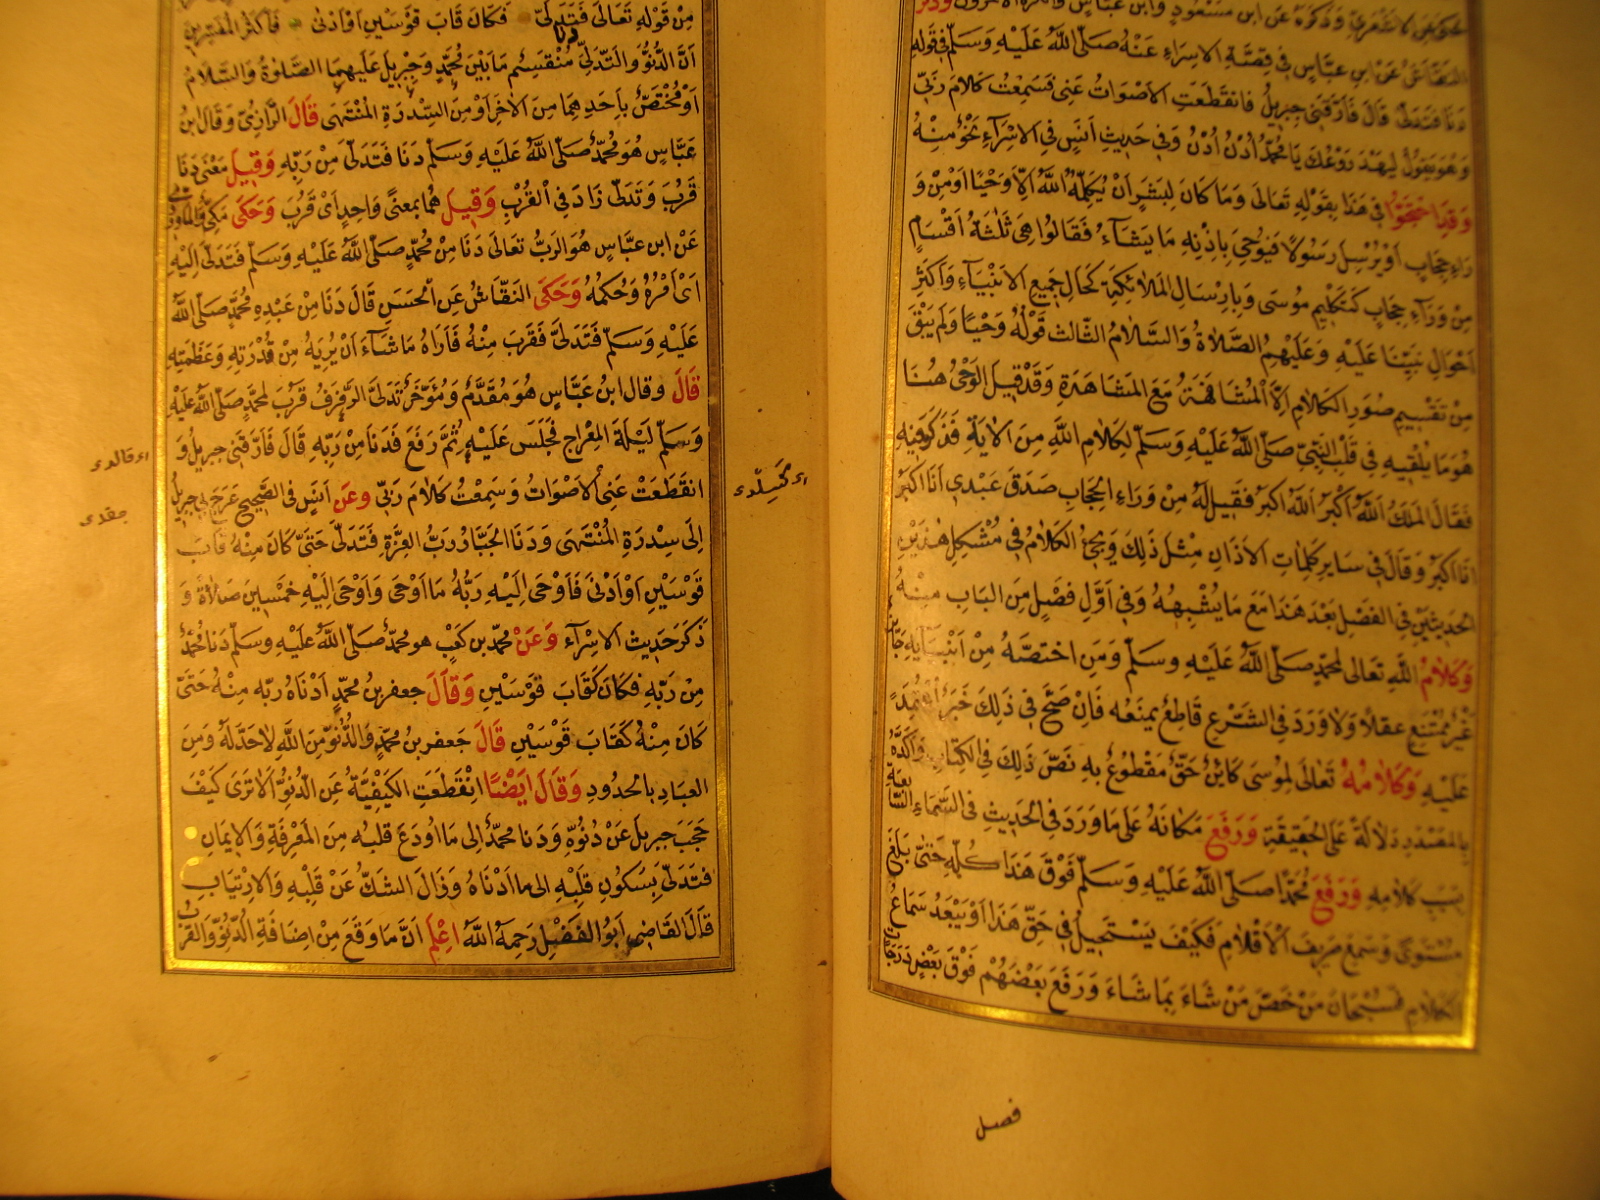 على بن الأشعري وذكره عن ابن مسعود وابن عباس
النقاش عن ابن عباس في قصة الاسراء عنه صلى الله عليه وسلم في قوله
دنا فتدلى قال فارقني جبريل فانقطعت الاصوات عني فسمعت كلام ربي
وهو يقول ليهد روعك يا محمد ادن ادن وفي حديث انس في الاسراء نحو منه
وقد احتجوا في هذا بقوله تعالى وما كان لبشر ان يكلمه الله الا وحيا او من و
راء حجاب او يرسل رسولا فيوحي باذنه ما يشاء فقالوا هي ثلثة اقسام
من وراء حجاب كتكليم موسى وبارسال الملائكة كحال جميع الانبياء واكثر
احوال نبينا عليه وعليهم الصلاة والسلام الثالث قوله وحيا ولم يبق
من تقسيم صور الكلام الا المشافهة مع المشاهدة وقد قيل الوحي هنا
هو ما يلقيه في قلب النبي صلى الله عليه وسلم لكلام الله من الاية فذكر فيه
فقال الملك الله اكبر الله اكبر فقيل له من وراء الحجاب صدق عبدي انا اكبر
انا اكبر وقال في ساير كلمات الاذان مثل ذلك ويجئ الكلام في مشكل هذين
الحديثين في الفصل بعد هذا مع ما يشبهه وفي اول فصل من الباب منه
وكلام الله تعالى لمحمد صلى الله عليه وسلم ومن اختصه من انبيائه جائز
غير ممتنع عقلا ولا ورد في الشرع قاطع يمنعه فان صح في ذلك خبر اعتمد
عليه وكلامه تعالى لموسى كاين حق مقطوع به نص ذلك في الكتاب واكده
بالمصدر دلالة على الحقيقة ورفع مكانه على ما ورد في الحديث في السماء السابعة
بسبب كلامه ورفع محمدا صلى الله عليه وسلم فوق هذا كله حتى بلغ
مستوى وسمع صريف الاقلام فكيف يستحيل في حق هذا او يبعد سماع
الكلام فسبحان من خص من شاء بما شاء ورفع بعضهم فوق بعض درجات
فصل
من قوله تعالى فتدلى فكان قاب قوسين او ادنى فاكثر المفسرين
ان الدنو والتدلي منقسم ما بين محمد وجبريل عليهما الصلوة والسلام
او مختص باحدهما من الاخر او من السدرة المنتهى قال الرازي وقال ابن
عباس هو محمد صلى الله عليه وسلم دنا فتدلى من ربه وقيل معنى دنا
قرب وتدلى زاد في القرب وقيل هما بمعنى واحد اي قرب وحكى مكي والماوردي
عن ابن عباس هو الرب تعالى دنا من محمد صلى الله عليه وسلم فتدلى اليه
اي امره وحكمه وحكى النقاش عن الحسن قال دنا من عبده محمد صلى الله
عليه وسلم فتدلى فقرب منه فاراه ما شاء ان يريه من قدرته وعظمته
قال وقال ابن عباس هو مقدم ومؤخر تدلى الرفرف قرب لمحمد صلى الله عليه
وسلم ليلة المعراج فجلس عليه ثم رفع فدنا من ربه قال فارقني جبريل و
انقطعت عني الاصوات وسمعت كلام ربي وعن انس في الصحيح عرج بي جبريل
الى سدرة المنتهى ودنا الجبار رب العزة فتدلى حتى كان منه قاب
قوسين او ادنى فاوحى اليه ربه ما اوحى واوحى اليه خمسين صلاة و
ذكر حديث الاسراء وعن محمد بن كعب هو محمد صلى الله عليه وسلم دنا محمد
من ربه فكان كقاب قوسين وقال جعفر بن محمد ادناه ربه منه حتى
كان منه كقاب قوسين قال جعفر بن محمد والدنو من الله لا حد له ومن
العباد بالحدود وقال ايضا انقطعت الكيفية عن الدنو الا ترى كيف
حجب جبريل عن دنوه ودنا محمد الى ما اودع قلبه من المعرفة والايمان
فتدلى بسكون قلبه الى ما ادناه وزال الشك عن قلبه والارتياب
قال القاضي ابو الفضل رحمه الله اعلم ان ما وقع من اضافة الدنو والقرب